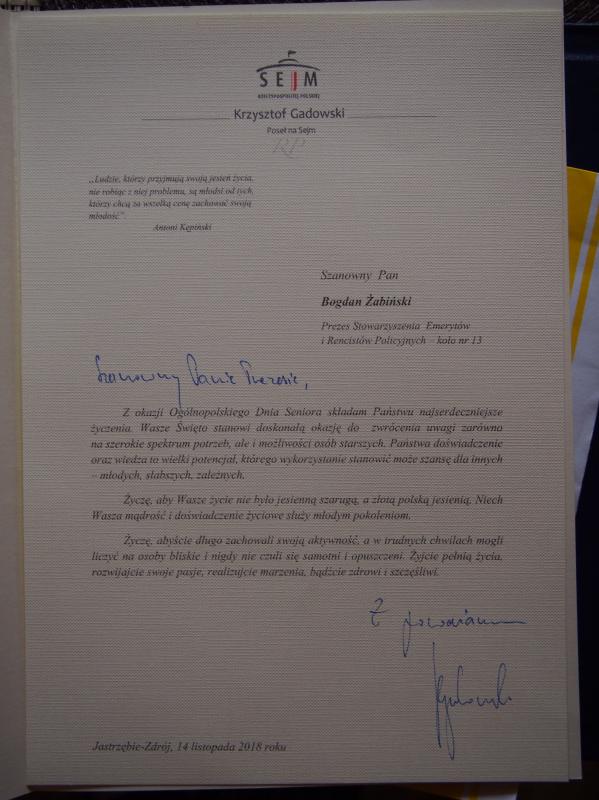 SEJM
RZECZYPOSPOLITEJ POLSKIEJ
Krzysztof Gadowski
Poseł na Sejm
RP
„Ludzie, którzy przyjmują swoją jesień życia,
nie robiąc z niej problemu, są młodsi od tych,
którzy chcą za wszelką cenę zachować swoją
młodość".
Antoni Kępiński
Szanowny Pan
Bogdan Żabiński
Prezes Stowarzyszenia Emerytów
i Rencistów Policyjnych – koło nr 13
Szanowny Panie Prezesie,
Z okazji Ogólnopolskiego Dnia Seniora składam Państwu najserdeczniejsze
życzenia. Wasze Święto stanowi doskonałą okazję do zwrócenia uwagi zarówno
na szerokie spektrum potrzeb, ale i możliwości osób starszych. Państwa doświadczenie
oraz wiedza to wielki potencjał, którego wykorzystanie stanowić może szansę dla innych
– młodych, słabszych, zależnych.
Życzę, aby Wasze życie nie było jesienną szarugą, a złotą polską jesienią. Niech
Wasza mądrość i doświadczenie życiowe służy młodym pokoleniom.
Życzę, abyście długo zachowali swoją aktywność, a w trudnych chwilach mogli
liczyć na osoby bliskie i nigdy nie czuli się samotni i opuszczeni. Żyjcie pełnią życia,
rozwijajcie swoje pasje, realizujcie marzenia, bądźcie zdrowi i szczęśliwi.
Z poważaniem
Jastrzębie-Zdrój, 14 listopada 2018 roku